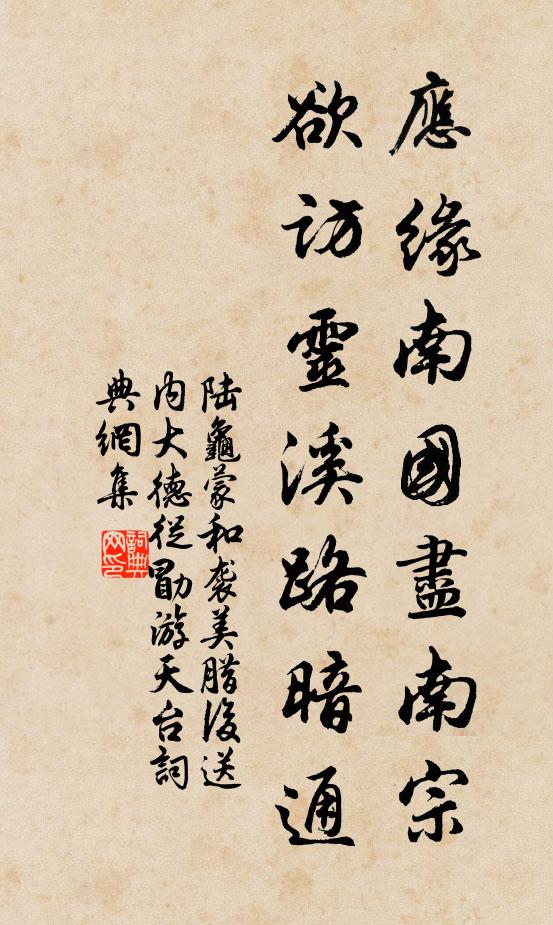 應緣南國盡南宗
欲訪靈溪路暗通
陆龜蒙和袭美腊後送
内大德從勖游天台詞
典網集
詞典网印